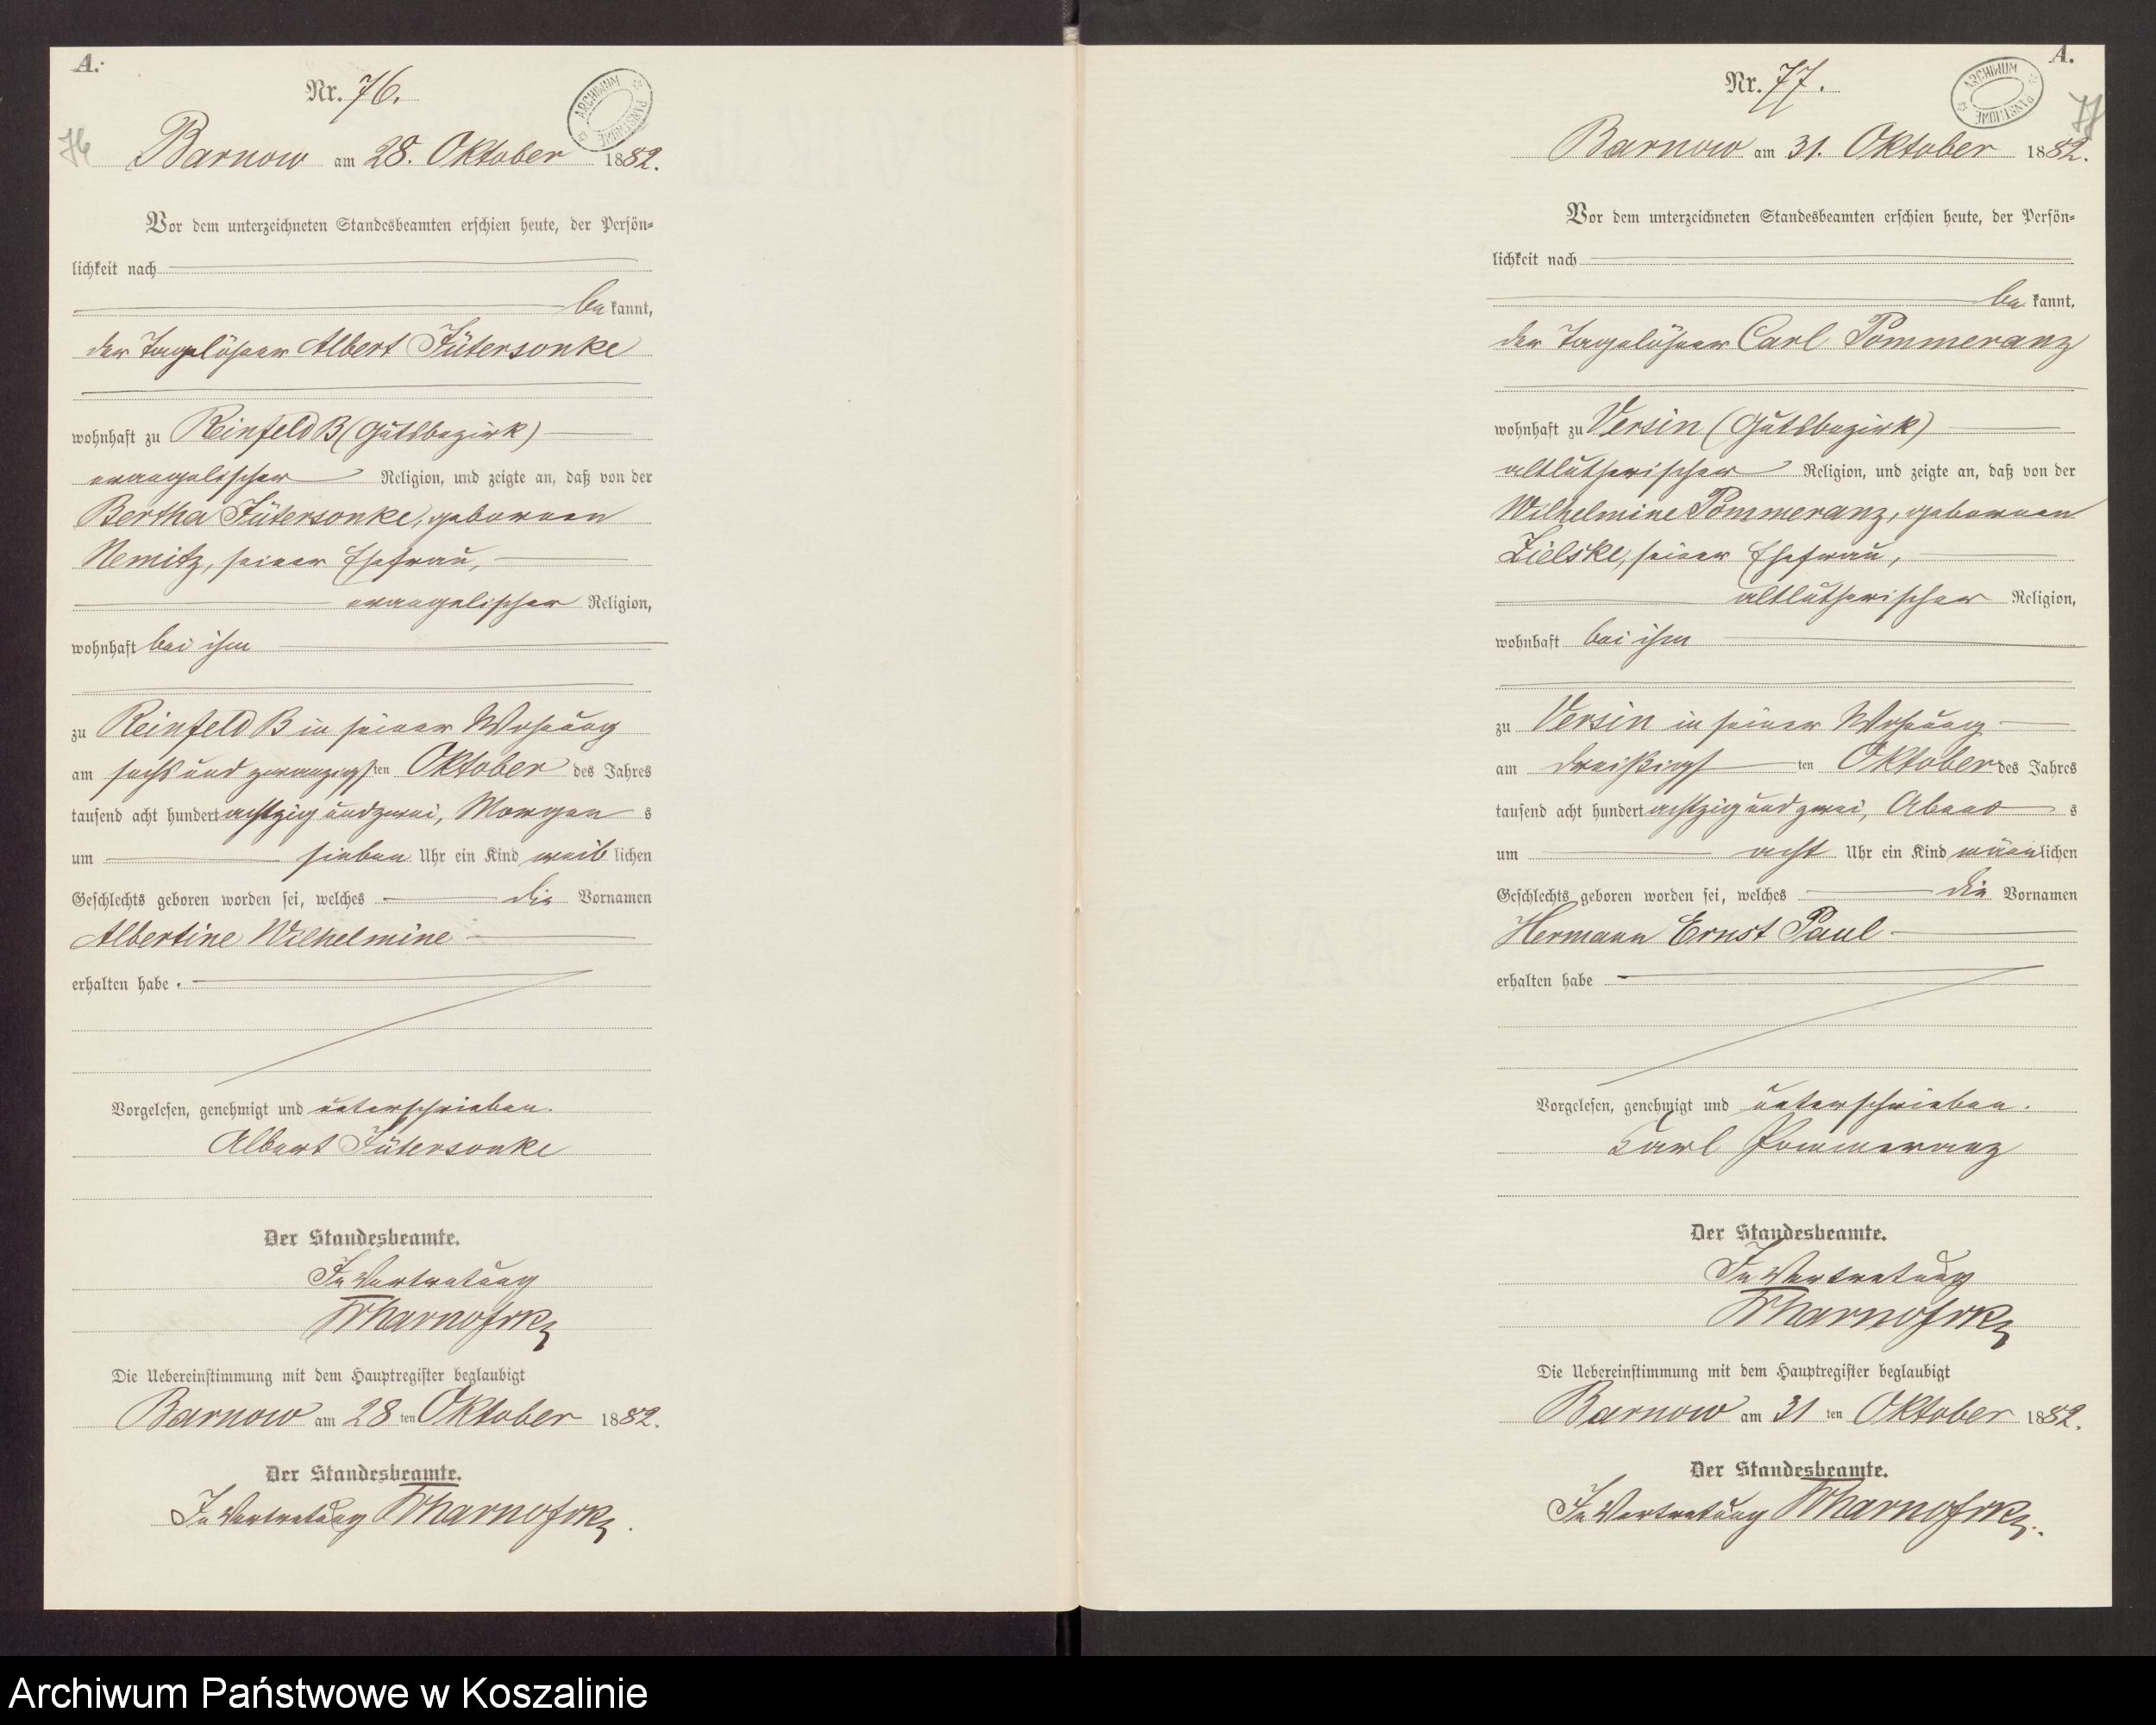 A.
Nr. 76.
ARCHIWUM PAŃSTWOWE
76
Barnow am 28. Oktober 1882.
Vor dem unterzeichneten Standesbeamten erschien heute, der Persön-
lichkeit nach
bekannt,
der Tagelöhner Albert Jütersonke
wohnhaft zu Reinfeld B (Gutsbezirk)
evangelischer Religion, und zeigte an, daß von der
Bertha Jütersonke, gebornen
Nemitz, seiner Ehefrau,
evangelischer Religion,
wohnhaft bei ihm
zu Reinfeld B in seiner Wohnung
am sechs und zwanzigsten Oktober des Jahres
tausend acht hundert achtzig und zwei, Morgens
um sieben Uhr ein Kind weiblichen
Geschlechts geboren worden sei, welches die Vornamen
Albertine Wilhelmine
erhalten habe.
Vorgelesen, genehmigt und unterschrieben.
Albert Jütersonke
Der Standesbeamte.
In Vertretung
Die Uebereinstimmung mit dem Hauptregister beglaubigt
Barnow am 28ten Oktober 1882.
Der Standesbeamte.
In Vertretung
A.
Nr. 77.
ARCHIWUM PAŃSTWOWE
77
Barnow am 31. Oktober 1882.
Vor dem unterzeichneten Standesbeamten erschien heute, der Persön-
lichkeit nach
bekannt,
der Tagelöhner Carl Pommeranz
wohnhaft zu Versin (Gutsbezirk)
altlutherischer Religion, und zeigte an, daß von der
Wilhelmine Pommeranz, gebornen
Zielske, seiner Ehefrau,
altlutherischer Religion,
wohnhaft bei ihm
zu Versin in seiner Wohnung
am dreißigsten Oktober des Jahres
tausend acht hundert achtzig und zwei, Abends
um acht Uhr ein Kind männlichen
Geschlechts geboren worden sei, welches die Vornamen
Hermann Ernst Paul
erhalten habe
Vorgelesen, genehmigt und unterschrieben.
Carl Pommeranz
Der Standesbeamte.
In Vertretung
Die Uebereinstimmung mit dem Hauptregister beglaubigt
Barnow am 31ten Oktober 1882.
Der Standesbeamte.
In Vertretung
Archiwum Państwowe w Koszalinie